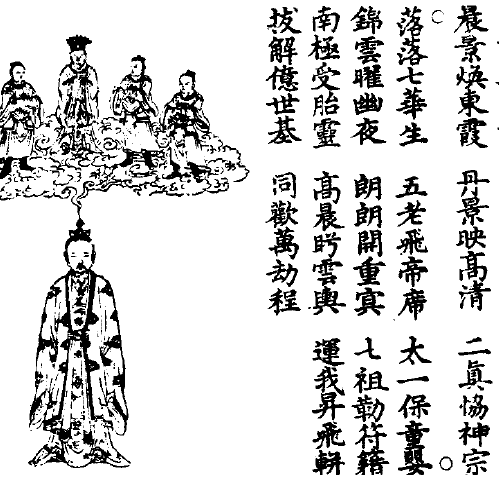 晨景煥東霞 丹景映高清 二真協神宗
落落七華生 五老飛帝席 太一保童嬰
錦雲曜幽夜 朗朗開重冥 七祖勒符籍
南極受胎靈 高晨眄雲輿 運我昇飛軿
拔解億世基 同歡萬劫程